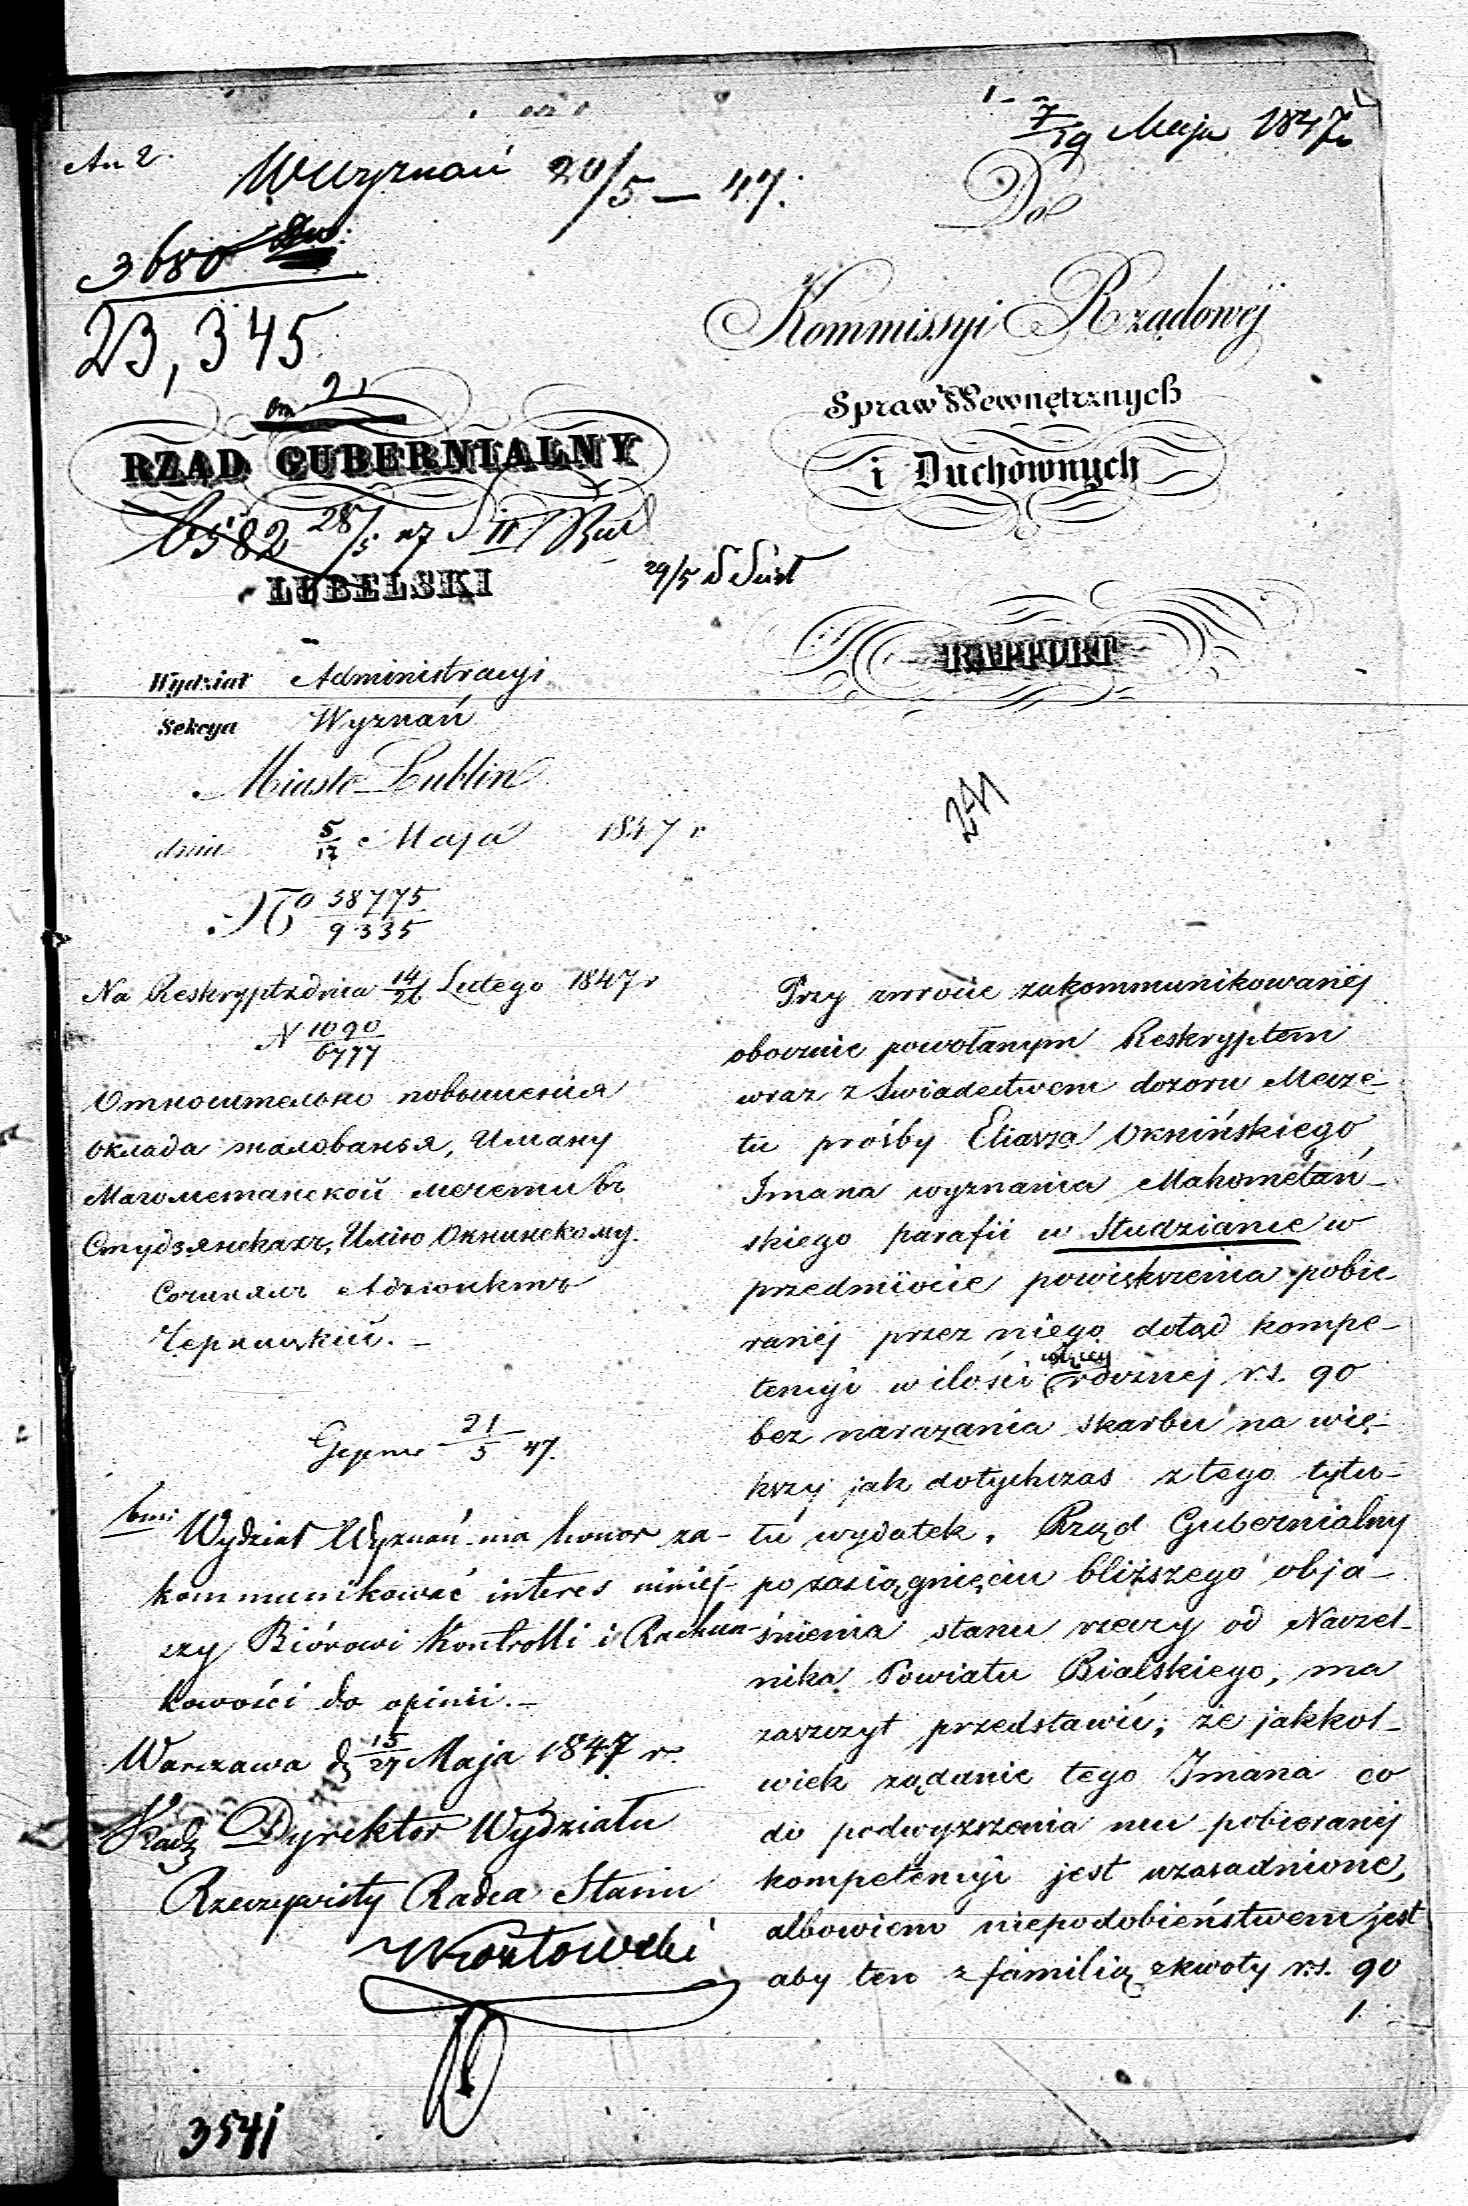 7/19 Maja 1847
An 2.
Wyznań 20/5 – 47.
Do
3680
23,345
Kommissyi Rządowéj
Spraw Wewnętrznych
i Duchownych
RZĄD GUBERNIALNY
6582 28/5 47 II
LUBELSKI
29/5
RAPPORT
Wydział Administracyi
Sekcya Wyznań
Miasto Lublin
dnia 5/17 Maja 1847 r
No 38775/9335
241
Na Reskrypt z dnia 14/26 Lutego 1847 r
N 1090/6777
Относительно повышения
оклада жалованья, Иману
Магометанской мечети въ
Студзянкахъ, Илію Окнинскому.
Сочинялъ Адъюнктъ
Черницкій. –
21/5 47.
Wydział Wyznań ma honor za-
kommunikować interes niniej-
szy Biórowi Kontrolli i Rachun-
kowości do opinii. –
Warszawa d. 15/27 Maja 1847 r.
Dyrektor Wydziału
Rzeczywisty Radca Stanu
3541
Przy zwrocie zakommunikowanéj
obocznie powołanym Reskryptem
wraz z Swiadectwem dozoru Mecze-
tu prośby Eliasza Oknińskiego
Imana wyznania Mahometań-
skiego parafii w Studziance w
przedmiocie powiększenia pobie-
ranéj przez niego dotąd kompe-
tencyi w ilości rocznej r.s. 90
bez narażania skarbu na wię-
kszy jak dotychczas z tego tytu-
łu wydatek. Rząd Gubernialny
po zasiągnięciu bliższego obja-
śnienia stanu rzeczy od Naczel-
nika Powiatu Bialskiego, ma
zaszczyt przedstawić; że jakkol-
wiek żądanie tego Imana co
do podwyższenia mu pobieranéj
kompetencyi jest uzasadnione,
albowiem niepodobieństwem jest
aby ten z familią z kwoty r.s. 90